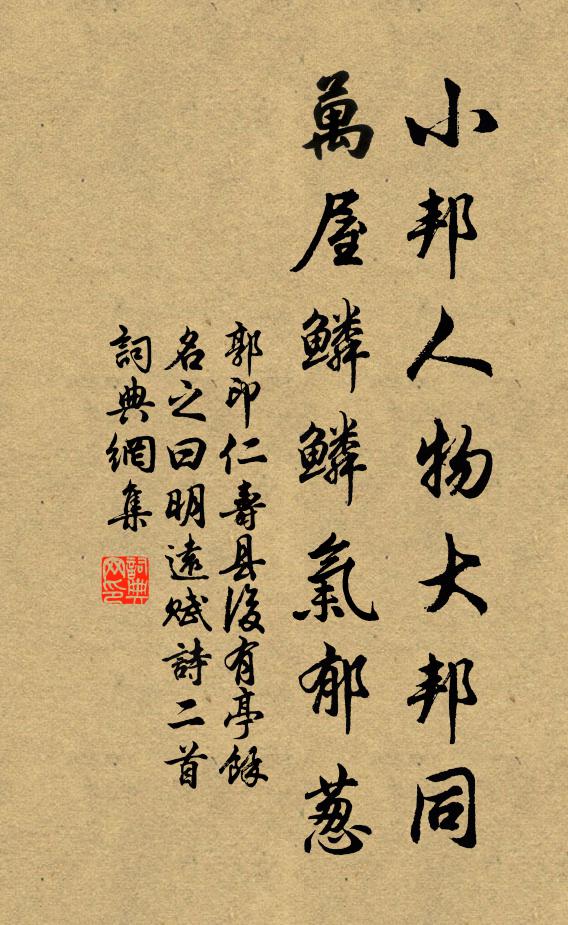 小邦人物大邦同
萬屋鱗鱗氣郁葱
郭印仁壽县後有亭餘
名之曰明遠賦詩二首
詞典網集
詞典网印